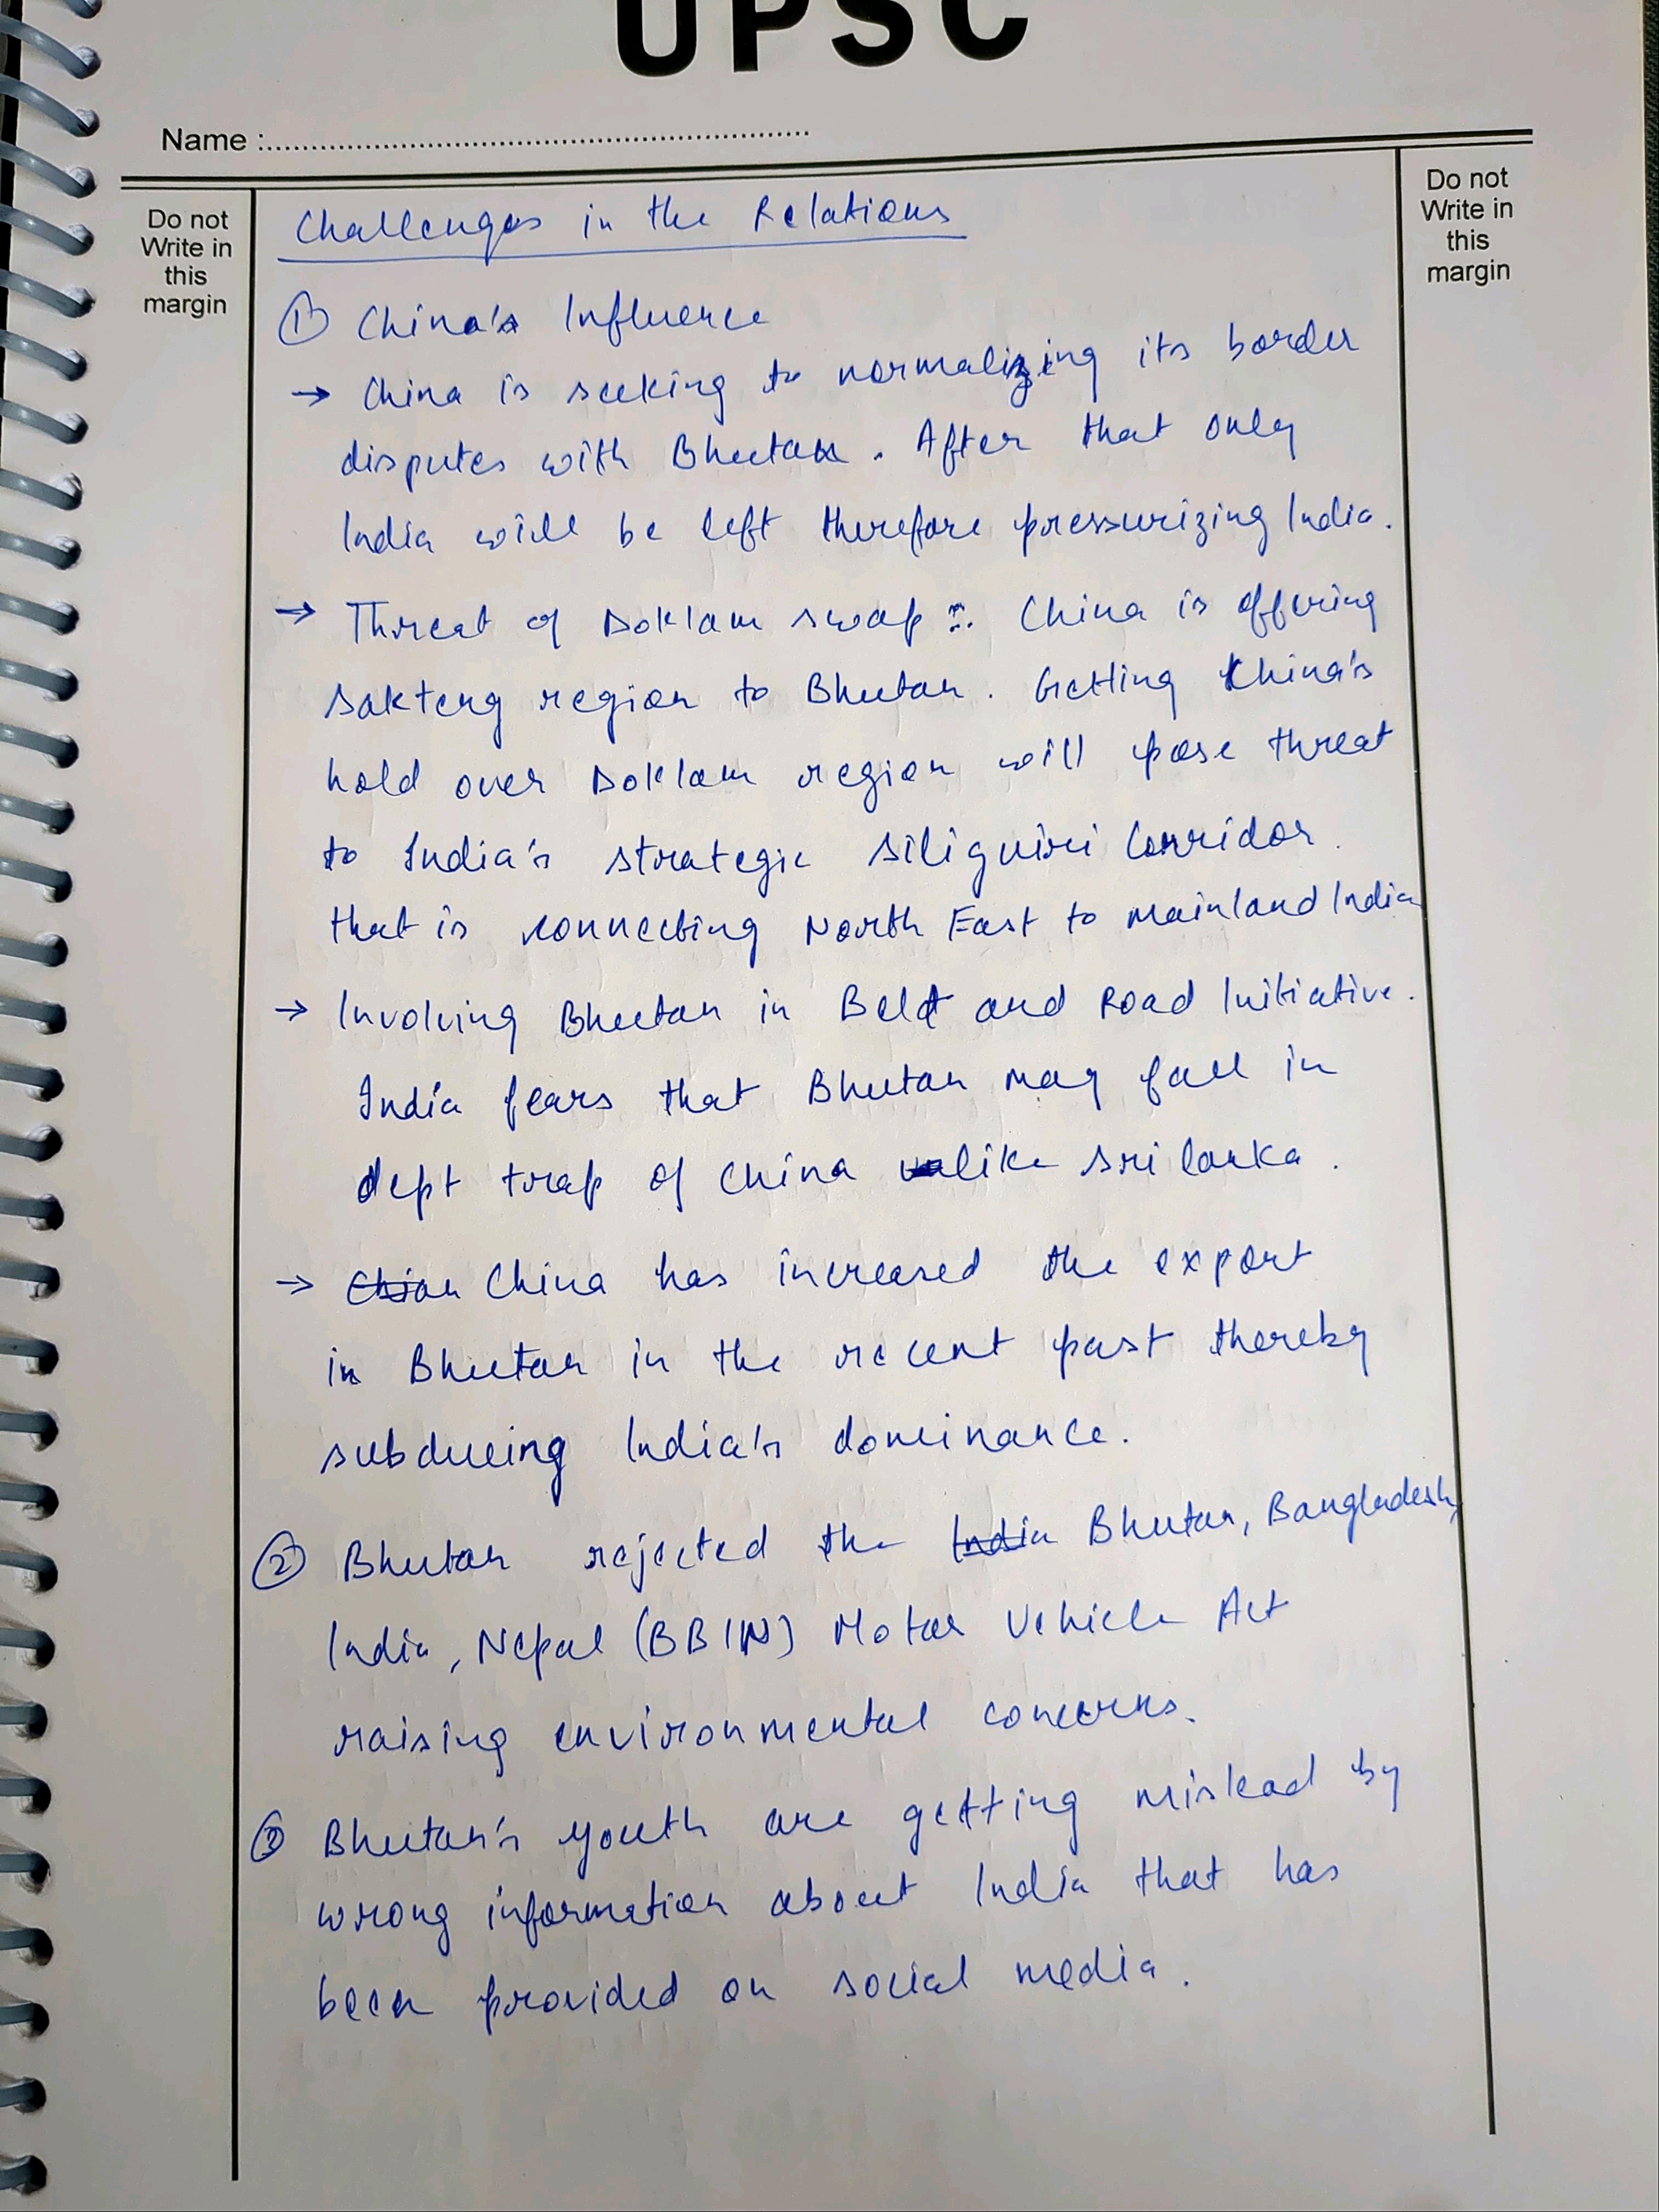 UPSC
Name :
Do not
Write in
this
margin
Do not
Write in
this
margin
Challenges in the Relations
① China's Influence
→ China is seeking to normalizing its border
disputes with Bhutan. After that only
India will be left therefore pressurizing India.
→ Threat of Doklam swap :- China is offering
Sakteng region to Bhutan. Getting China's
hold over Doklam region will pose threat
to India's strategic Siliguiri Corridor.
that is connecting North East to mainland India
→ Involving Bhutan in Belt and Road Initiative.
India fears that Bhutan may fall in
dept trap of China like Sri lanka.
→ China has increased the export
in Bhutan in the recent past thereby
subdueing India's dominance.
② Bhutan rejected the Bhutan, Bangladesh,
India, Nepal (BBIN) Motor Vehicle Act
raising environmental concerns.
③ Bhutan's youth are getting mislead by
wrong information about India that has
been provided on social media.